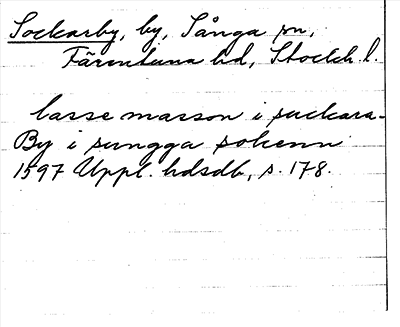 Sockarby, by, Sånga sn,
Färentuna hd, Stockh. l.
lasse masson i suckara-
By i sungga sokenn
1597 Uppl. hdsdb, s. 178.